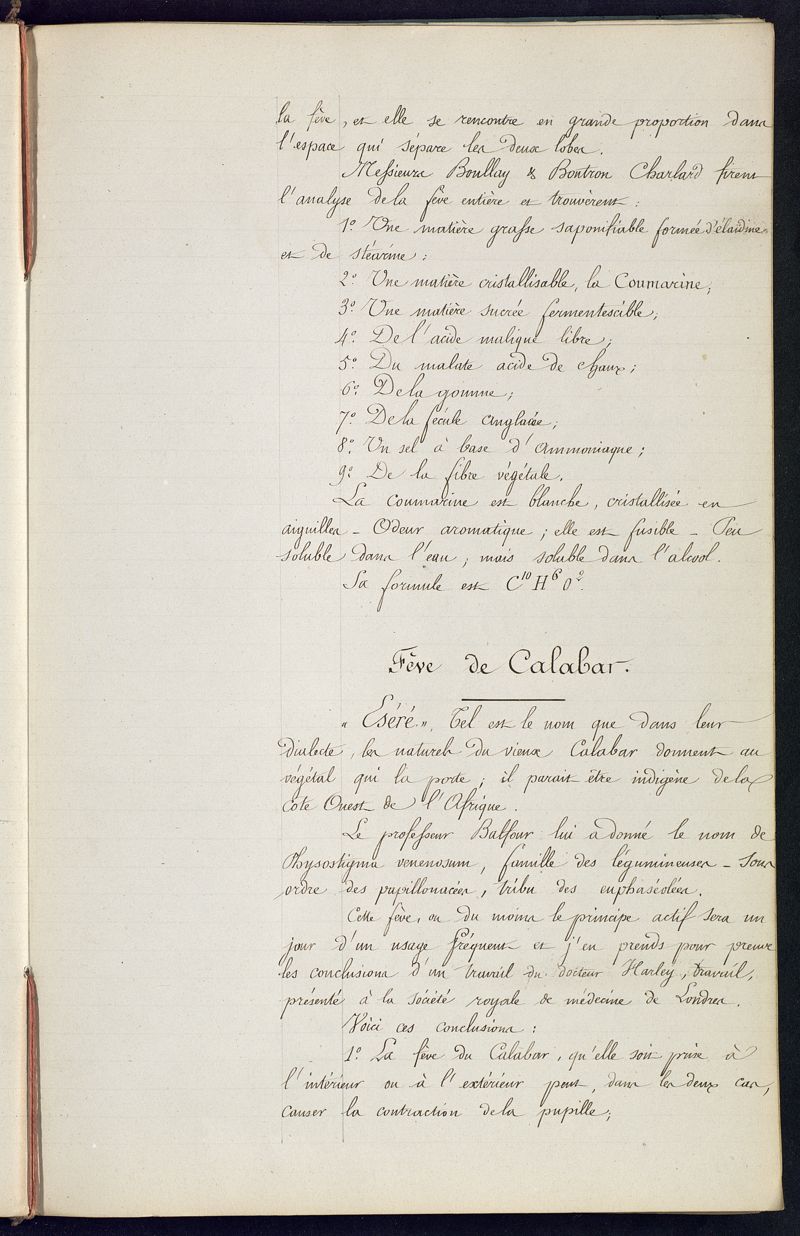 la fève, et elle se rencontre en grande proportion dans
l'espace qui sépare les deux lobes.
Messieurs Boullay & Boutron Charlard firent
l'analyse de la fève entière et trouvèrent :
1º Une matière grasse saponifiable formée d'élaidine
et de stéarine ;
2º Une matière cristallisable, la Coumarine ;
3º Une matière sucrée fermentescible ;
4º De l'acide malique libre ;
5º Du malate acide de chaux ;
6º De la gomme ;
7º De la fécule anglacée ;
8º Un sel à base d'Ammoniaque ;
9º De la fibre végétale.
La coumarine est blanche, cristallisée en
aiguilles – Odeur aromatique ; elle est fusible – Peu
soluble dans l'eau ; mais soluble dans l'alcool.
Sa formule est C¹⁰ H⁶ O².
Fève de Calabar.
"Eséré", Tel est le nom que dans leur
dialecte, les naturels du vieux Calabar donnent au
végétal qui la porte ; il parait être indigène de la
côte Ouest de l'Afrique.
Le professeur Balfour lui a donné le nom de
Physostigma venenosum, famille des légumineuses – Sous
ordre des papillonacées, tribu des euphaséolées.
Cette fève, ou du moins le principe actif sera un
jour d'un usage fréquent et j'en prends pour preuve
les conclusions d'un travail du docteur Harley, travail,
présenté à la société royale de médecine de Londres.
Voici ces conclusions :
1º La fève du Calabar, qu'elle soit prise à
l'intérieur ou à l'extérieur peut, dans les deux cas,
causer la contraction de la pupille ;